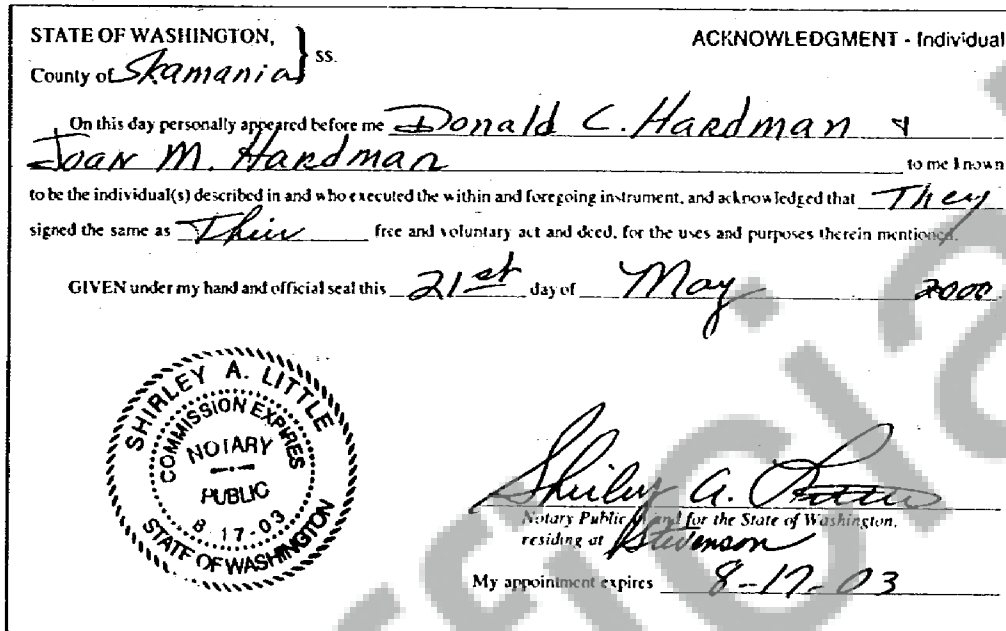 STATE OF WASHINGTON,
County of Skamania } ss.
ACKNOWLEDGMENT - Individual
On this day personally appeared before me Donald C. Hardman &
Joan M. Hardman to me known
to be the individual(s) described in and who executed the within and foregoing instrument, and acknowledged that They
signed the same as Their free and voluntary act and deed, for the uses and purposes therein mentioned.
GIVEN under my hand and official seal this 21st day of May 2000
SHIRLEY A. LITTLE
COMMISSION EXPIRES
NOTARY
PUBLIC
8-17-03
STATE OF WASHINGTON
Shirley A. Little
Notary Public in and for the State of Washington,
residing at Stevenson
My appointment expires 8-17-03